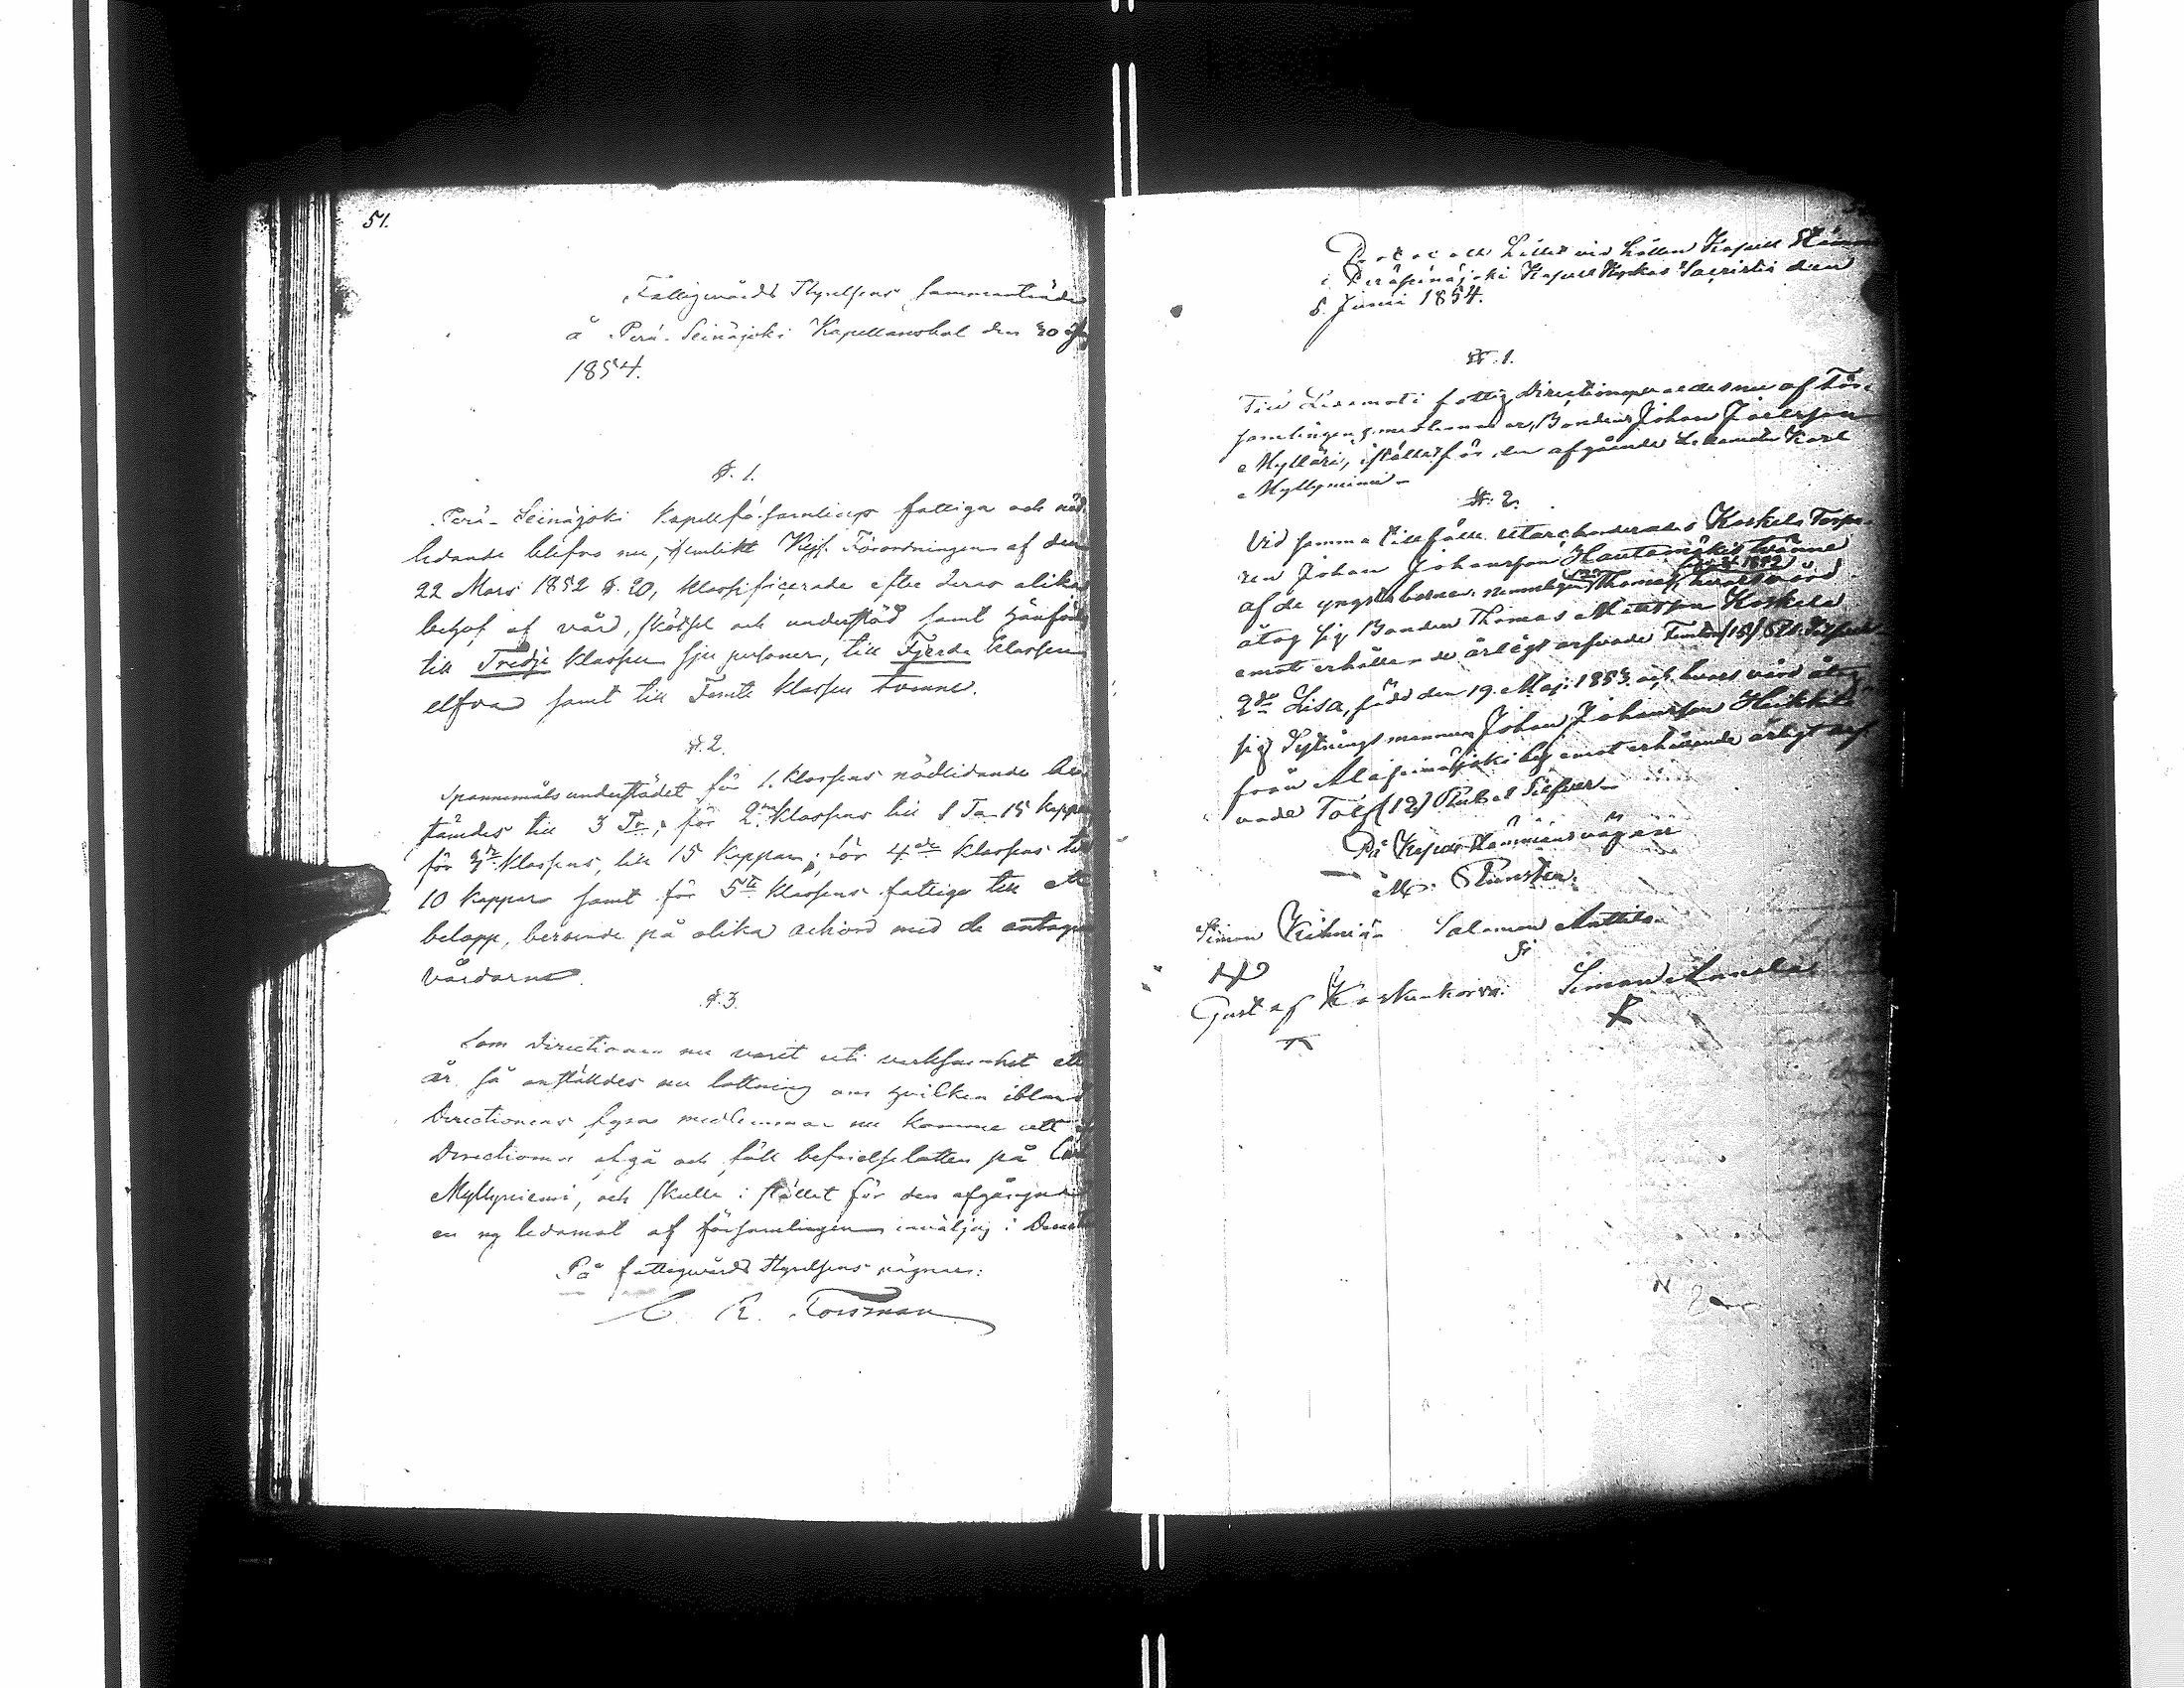 51.
Fattigwårds Styrelsens sammanträde
å Perä-Seinäjoki Kapellansbol den 30
1854.
§. 1.
Perä-Seinäjoki Kapellförsamlings fattiga och nöd-
lidande blefvo nu, jemlikt Kejs. Förordningen af den
22 Mars 1852 §. 20, klassificerade efter deras olika
behof af vård, skötsel och understöd samt hänförde
till Tredje klassen sju personer, till Fjerde klassen
elfva samt till Femte klassen tvenne.
§. 2.
Spannemåls understödet för 1. klassens nödlidande be-
stämdes till 3 Tr, för 2 klassens till 1 Ta 15 kappar
för 3 klassens, till 15 kappar; för 4de klassens till
10 kappar samt för 5te klassens fattiga till ett
belopp, beroende på olika ackord med de antagna
vårdarne.
§. 3.
Som directionen nu varit uti verksamhet ett
år så anställdes nu lottning om hvilken ibland
Directionens fyra medlemmar nu komme att
Directionen afgå och föll befrielselotten på
Myllyniemi, och skulle i stället för den afgångne
en ny ledamot af församlingen inväljas i
På fattigwårds Styrelsens vägnar:
C. R. Forsman
Protocoll hållet vid hållen Kapell Stämma
i Peräseinäjoki Kapell Kyrkas Sacristia den
5 Junii 1854.
§. 1.
Till Ledamot i fattig Directionen valdes nu af För-
samlingens medlemmar, Bonden Johan Joelsson
Mylläri, istället för den afgående Ledamoten Karl
Myllyniemi
§. 2.
Vid samma tillfälle utarchorderades Koskela Torpa-
ren Johan Johansson Hautamäkis tvänne
1852
af de yngsta barnen, nemmligen Thomas, hvars vård
åtog sig Bonden Thomas Mattsson Koskela
emot erhållande årligt arfvode Femton (15) Rub. Silfver
2do Lisa, född den 19. Maj 1853. och hvars vård åtog
sig Sytningsmannen Johan Johansson Heikkilä
från Alaseinäjoki by emot erhållande årligt arf-
vode Tolf (12) Rubel Silfver
På Kapell Stämmans vägnar
M. Runsten.
Simon Kihniä Salomon Anttila
Gustaf Koskenkorva. Simon Annala